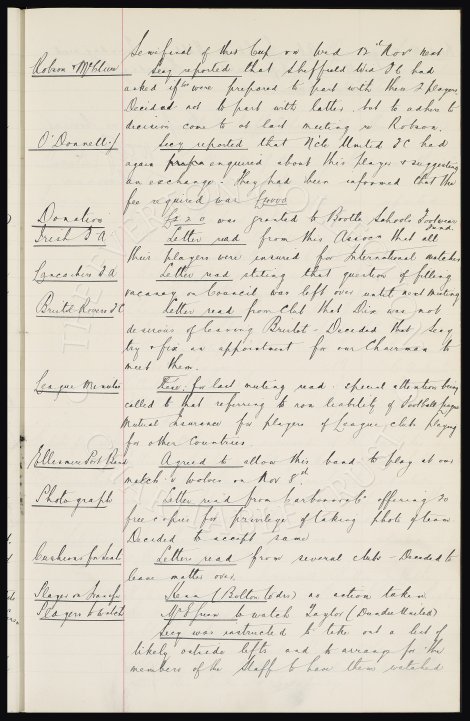 Semifinal of this Cup on Wed 12th Nov next
Robson & McClure Secy reported that Sheffield Wed FC had
asked if we were prepared to part with these 2 players
Decided not to part with latter, but to adhere to
decision come to at last meeting re Robson.
O'Donnell J Secy reported that Ncle United FC had
again enquired about this player & suggesting
an exchange. They had been informed that the
fee required was £4000
Donation £2 2 0 was granted to Bootle Schools Footwear Fund.
Irish F A Letter read from this Assocn that all
their players were insured for International matches
Lancashire F A Letter read stating that question of filling
vacancy on Council was left over until next meeting
Bristol Rovers F C Letter read from Club that Dix was not
desirous of leaving Bristol - Decided that Secy
try & fix an appointment for our Chairman to
meet them.
League Minutes These for last meeting read. Special attention being
called to that referring to non liability of Football League
Mutual Insurance for players of League clubs playing
for other countries
Ellesmere Port Band Agreed to allow this band to play at our
match v Wolves on Nov 8th
Photograph Letter read from offering 20
free copies for privilege of taking photo of team
Decided to accept same
Cushions for Seats Letters read from several clubs - Decided to
leave matter over.
Player on Transfer (Bolton Wdrs) no action taken
Players to watch to watch Taylor (Dundee United)
Secy was instructed to take out a list of
likely outside lefts and to arrange for the
members of the Staff to have them watched